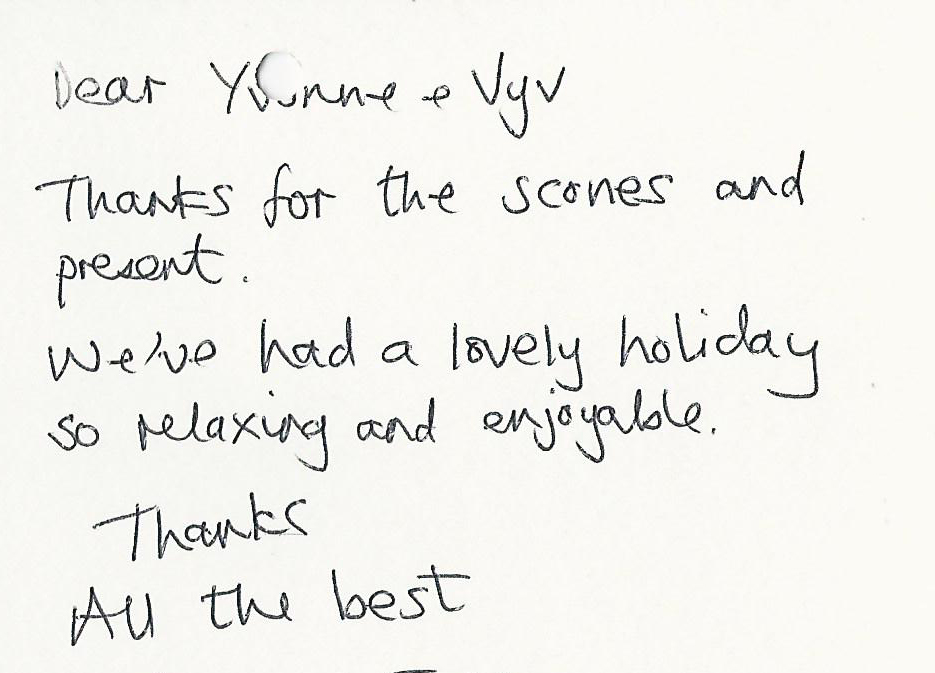 Dear Yvonne e Vyv
Thanks for the scones and
present.
We've had a lovely holiday
so relaxing and enjoyable.
Thanks
All the best